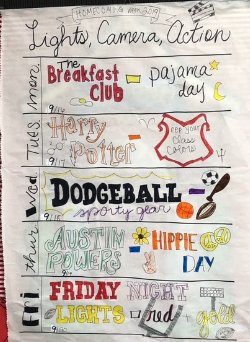 HOMECOMING WEEK 2019
Lights, Camera, Action
mon.
The Breakfast Club - pajama day
9/16
Tues.
Harry Potter - REP YOUR Class Colors!
9/17
Wed
DODGEBALL -
sporty gear
9/18
thur
AUSTIN POWERS - HIPPIE DAY
9/19
Fri
FRIDAY NIGHT
LIGHTS - red + gold
9/20